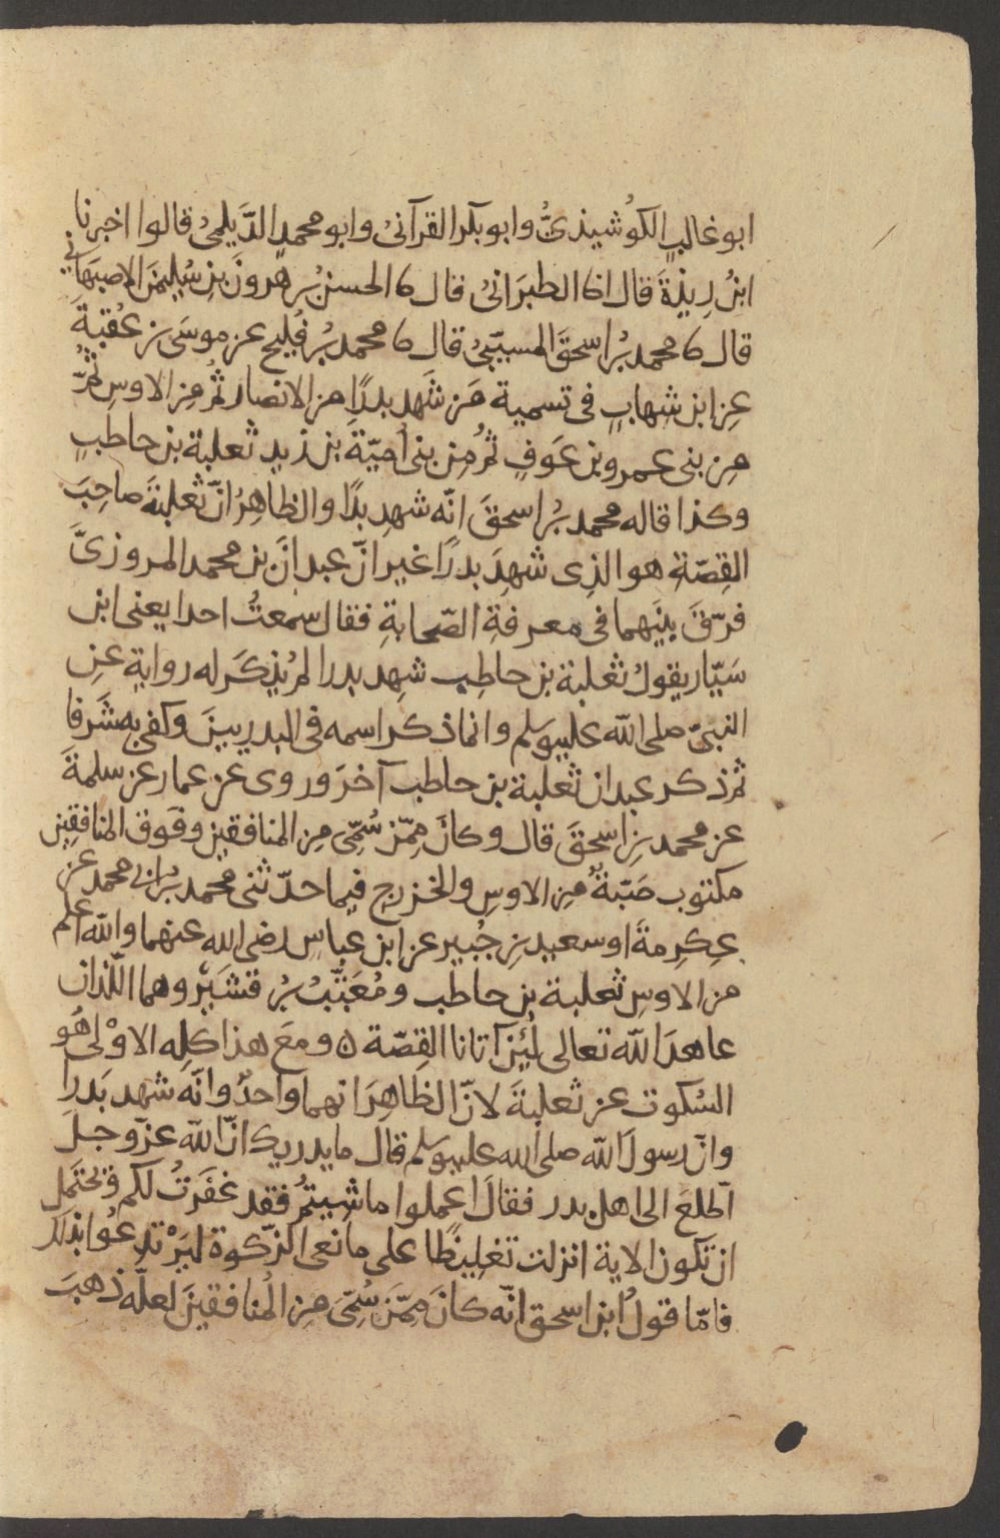 ابو غالبٍ الكُوشيذيُّ وابو بكر القرآنيُ وابو محمدٍ الدَّيلميُ قالوا اخبرنا
ابنُ رِيذةَ قال انا الطبرَانيُ قال ثا الحسنُ بْر هرونَ بنِ سُليمنَ الاصبَهاني
قال ثا محمد بْرُ اسحقَ المسيّبيُ قال ثا محمد بْرُ فُليح عن موسَى بن عُقبةَ
عنِ ابن شهابٍ فى تسمية مَن شَهد بدرًا من الانصار ثُم مِن الاوسِ ثُمّ
مِن بنى عمرو بن عَوفٍ ثُم مِن بنى أُميّةَ بن زيدٍ ثعلبة بن حاطبٍ
وكذا قاله محمد بْرُ اسحقَ انّه شهد بدًا والظاهِرُ انّ ثعلبةَ صاحِبَ
القِصّةِ هو الذِى شهِدَ بدرًا غير انّ عبدانَ بن محمد المروزىَّ
فرّقَ بينَهما فى معرفةِ الصّحابةِ فقال سمعتُ احدا يعنى ابن
سَيّار يقولُ ثعلبة بن حاطِب شهِد بدرا لم يُذكَر له رواية عنِ
النبىّ صلى الله عليه وسلم وانما ذكر اسمه فى البدريينَ وكفى به شَرفا
ثم ذكر عبدان ثعلبة بن حاطب آخرَ وروى عن عمار عن سلمةَ
عن محمد بنِ اسحقَ قال وكانَ مِمّن سُمِّى مِن المنافقين وفوق المنافقين
مكتوب ضَبّةٌ مِن الاوسِ والخزرج فيما حدّثنى محمد بْرُ ابى محمد عن
عِكرِمةَ او سعيد بنِ جُبير عن ابن عباس رضى الله عنهما والله اعلم
من الاوسِ ثعلبة بن حاطب ومُعَتّبُ بْرُ قشَيْر وهما اللّذان
عاهدَا الله تعالى لئِن آتانا القِصّة ه ومعَ هذا كلِه الاوْلى هُو
السُكوت عن ثعلبةَ لانّ الظاهِرَ انهما واحدٌ وانّه شهد بَدرا
وانّ رسولَ الله صلى الله عليه وسلم قال ما يدريك انّ الله عزّ وجلَ
اطّلعَ الى اهل بدر فقالَ اعملوا ما شِيتُم فقد غفَرتُ لكم ويحتَمل
ان تكون الاية انزلت تغلِيظًا على مانعى الزكوة ليَرْتدِعُوا بذلك
فامّا قولُ ابن اسحق انّه كانَ مِمّن سُمِّى مِن المُنافقينَ لعلّه ذهبَ